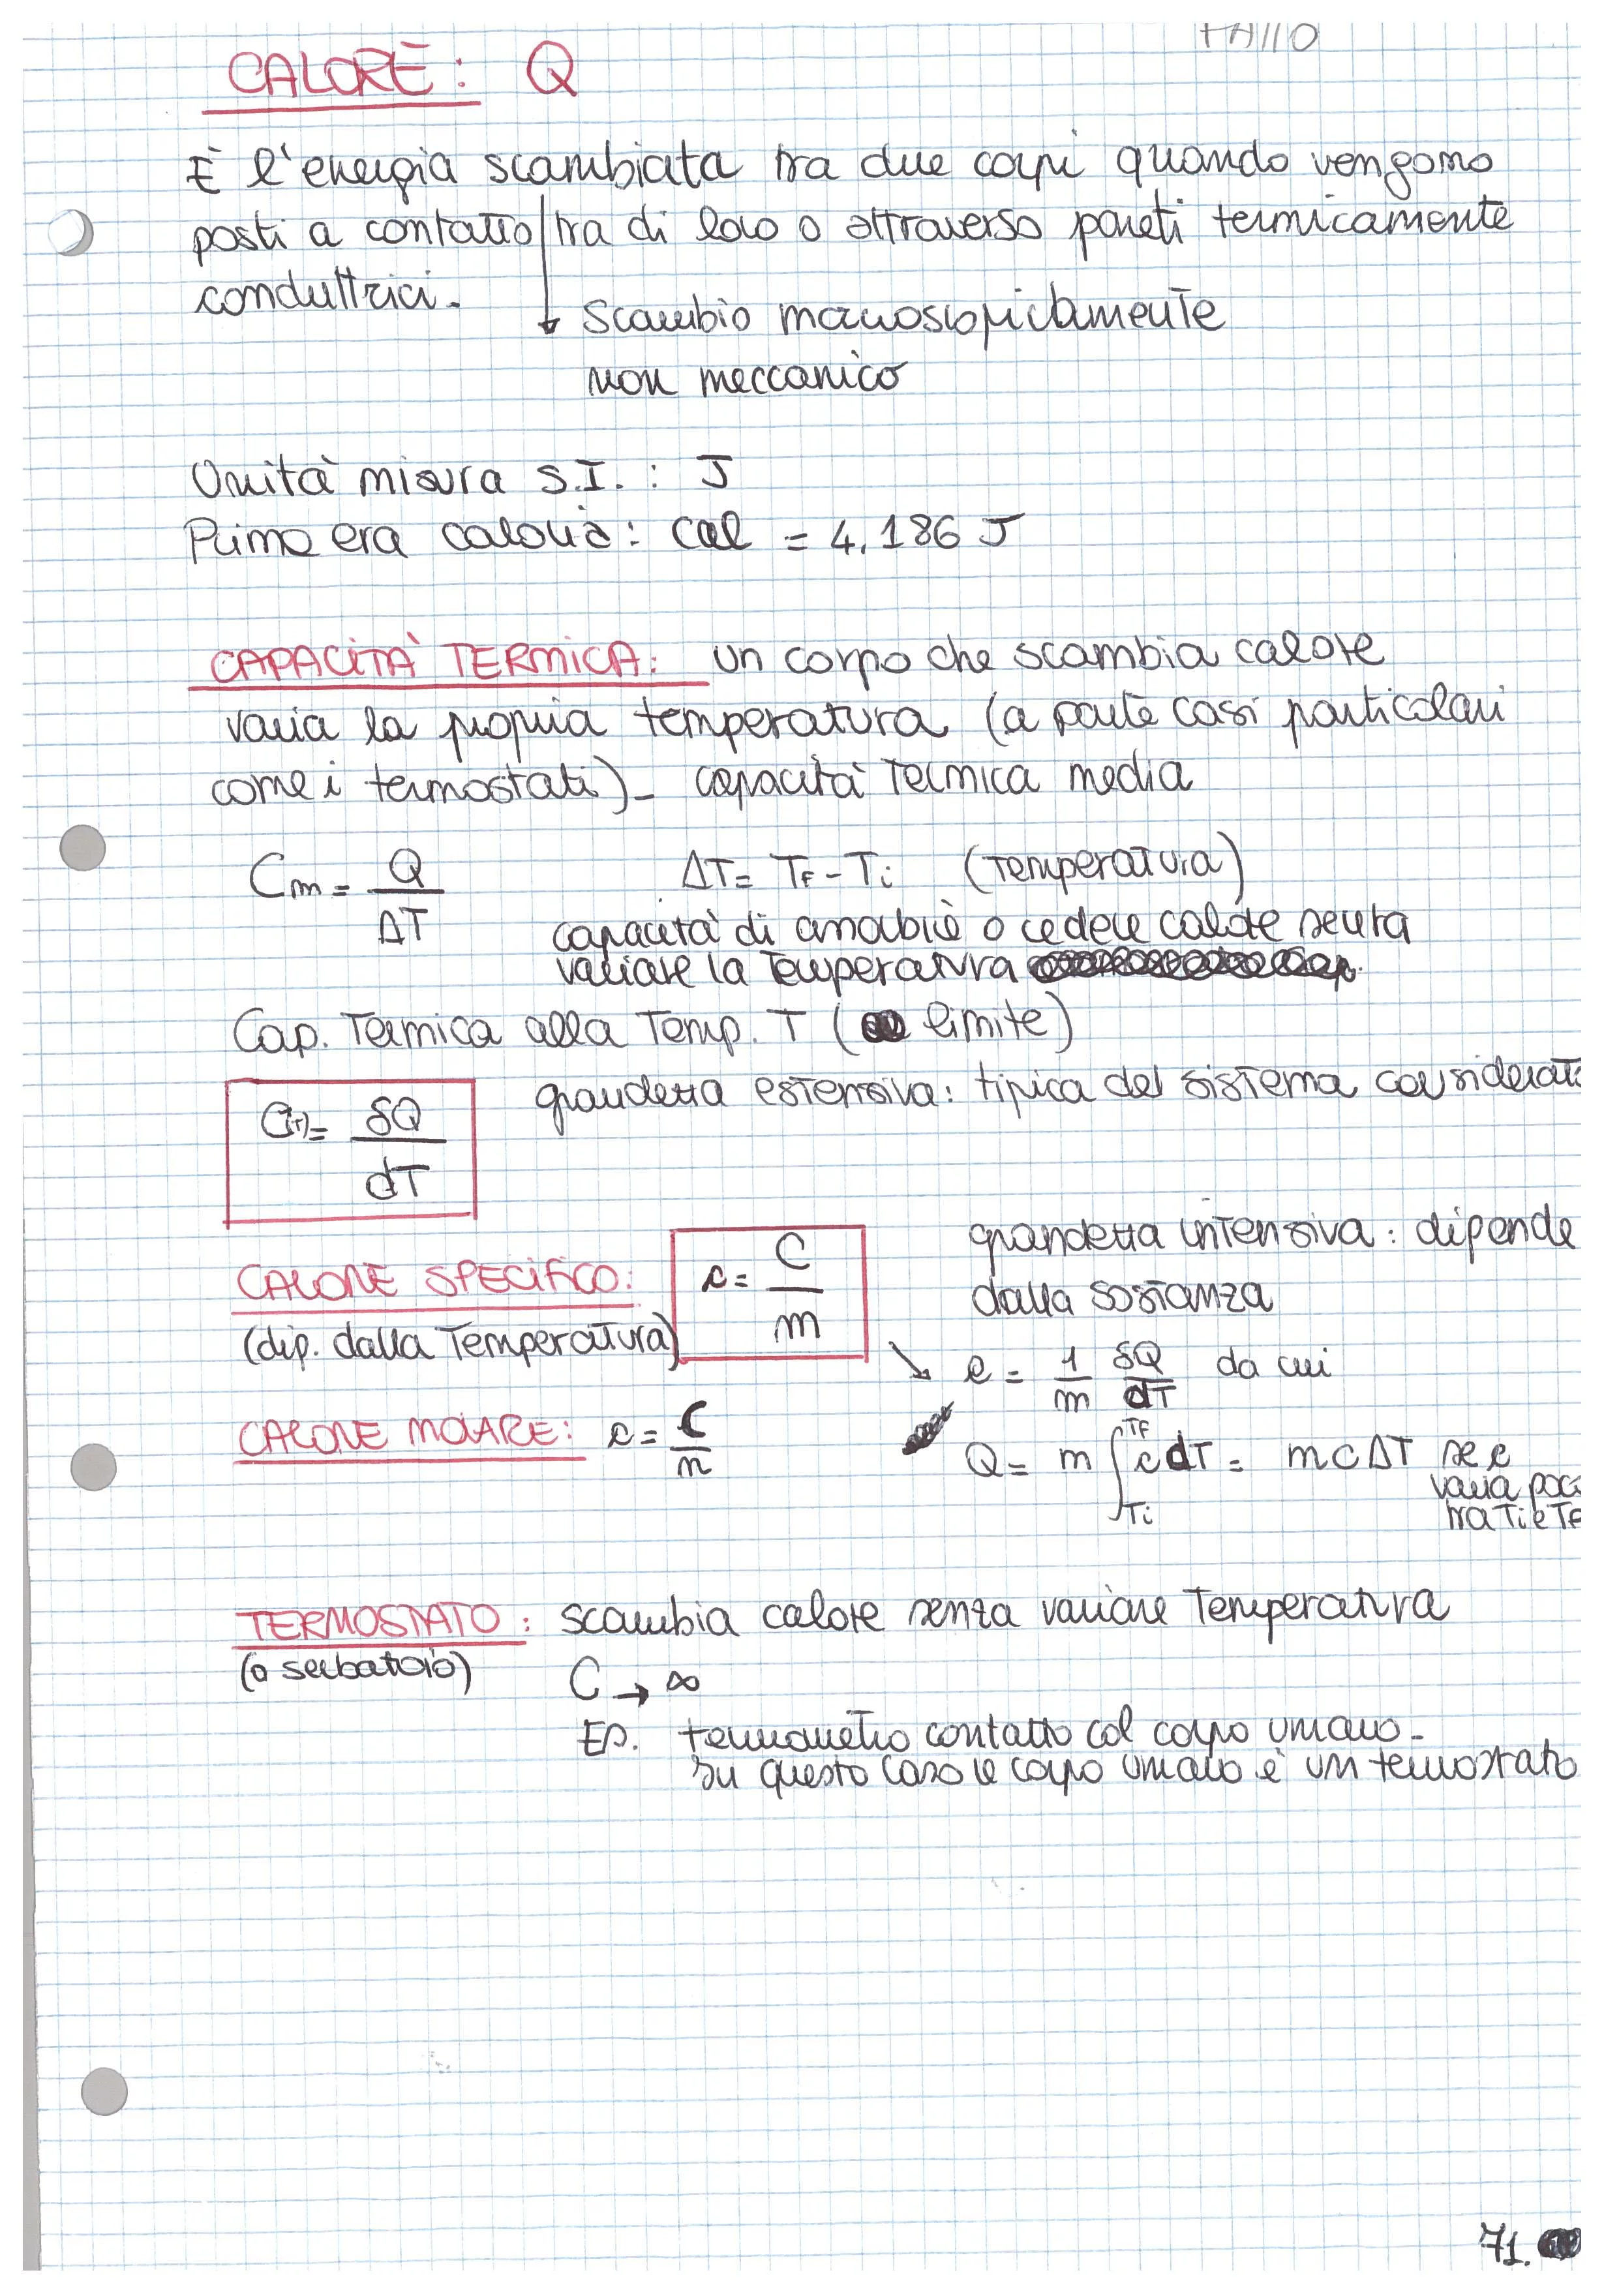 CALORE: Q
È l'energia scambiata tra due corpi quando vengono
posti a contatto tra di loro o attraverso pareti termicamente
conduttrici.
Scambio macroscopicamente
non meccanico
Unità misura S.I.: J
Prima era caloria: cal = 4,186 J
CAPACITÀ TERMICA: un corpo che scambia calore
varia la propria temperatura (a parte casi particolari
come i termostati)_ capacità termica media
Cm = Q / ΔT
ΔT = TF - Ti (temperatura)
capacità di assorbire o cedere calore senza
variare la temperatura
Cap. Termica alla Temp. T ( limite)
C(T) = δQ / dT
grandezza estensiva: tipica del sistema considerat
CALORE SPECIFICO: c = C / m
(dip. dalla Temperatura)
grandezza intensiva: dipende
dalla sostanza
↘ c = 1/m δQ/dT da cui
CALORE MOLARE: c = C / n
Q = m ∫Ti TF c dT = m c ΔT se c
varia poco
tra Ti e TF
TERMOSTATO: scambia calore senza variare Temperatura
(o serbatoio)
C → ∞
Es. termometro contatto col corpo umano_
In questo caso il corpo umano è un termostato
71.